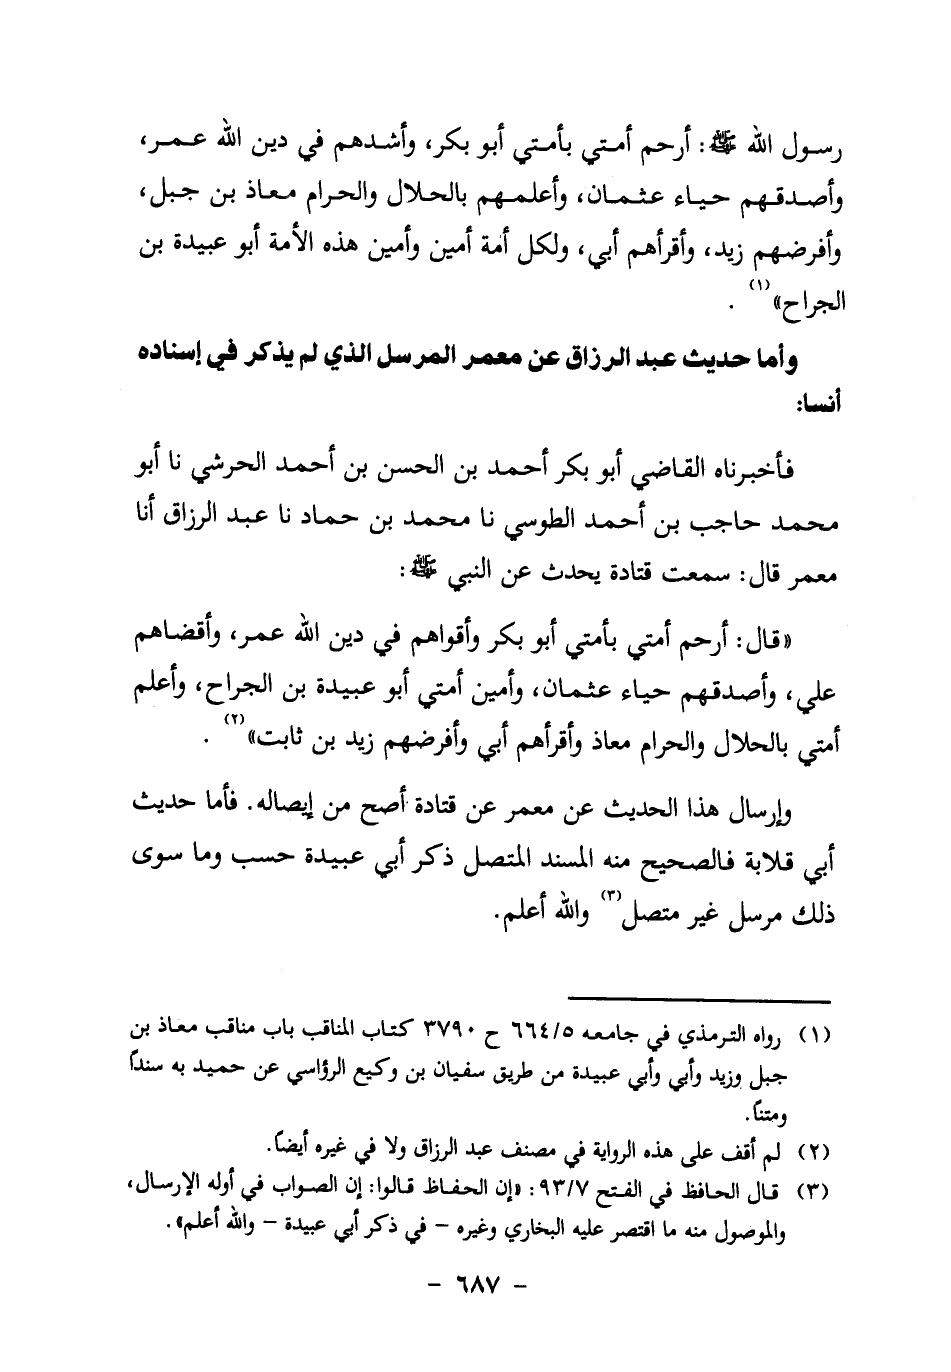 رسول الله ﷺ: أرحم أمتي بأمتي أبو بكر، وأشدهم في دين الله عمر،
وأصدقهم حياء عثمان، وأعلمهم بالحلال والحرام معاذ بن جبل،
وأفرضهم زيد، وأقرأهم أبي، ولكل أمة أمين وأمين هذه الأمة أبو عبيدة بن
الجراح»(١) .
وأما حديث عبد الرزاق عن معمر المرسل الذي لم يذكر في إسناده
أنسا:
فأخبرناه القاضي أبو بكر أحمد بن الحسن بن أحمد الحرشي نا أبو
محمد حاجب بن أحمد الطوسي نا محمد بن حماد نا عبد الرزاق أنا
معمر قال: سمعت قتادة يحدث عن النبي ﷺ:
«قال: أرحم أمتي بأمتي أبو بكر وأقواهم في دين الله عمر، وأقضاهم
علي، وأصدقهم حياء عثمان، وأمين أمتي أبو عبيدة بن الجراح، وأعلم
أمتي بالحلال والحرام معاذ وأقرأهم أبي وأفرضهم زيد بن ثابت»(٢) .
وإرسال هذا الحديث عن معمر عن قتادة أصح من إيصاله. فأما حديث
أبي قلابة فالصحيح منه المسند المتصل ذكر أبي عبيدة حسب وما سوى
ذلك مرسل غير متصل(٣) والله أعلم.
(١) رواه الترمذي في جامعه ٦٦٤/٥ ح ٣٧٩٠ كتاب المناقب باب مناقب معاذ بن
جبل وزيد وأبي وأبي عبيدة من طريق سفيان بن وكيع الرؤاسي عن حميد به سنداً
ومتناً.
(٢) لم أقف على هذه الرواية في مصنف عبد الرزاق ولا في غيره أيضاً.
(٣) قال الحافظ في الفتح ٩٣/٧: «إن الحفاظ قالوا: إن الصواب في أوله الإرسال،
والموصول منه ما اقتصر عليه البخاري وغيره – في ذكر أبي عبيدة – والله أعلم».
– ٦٨٧ –